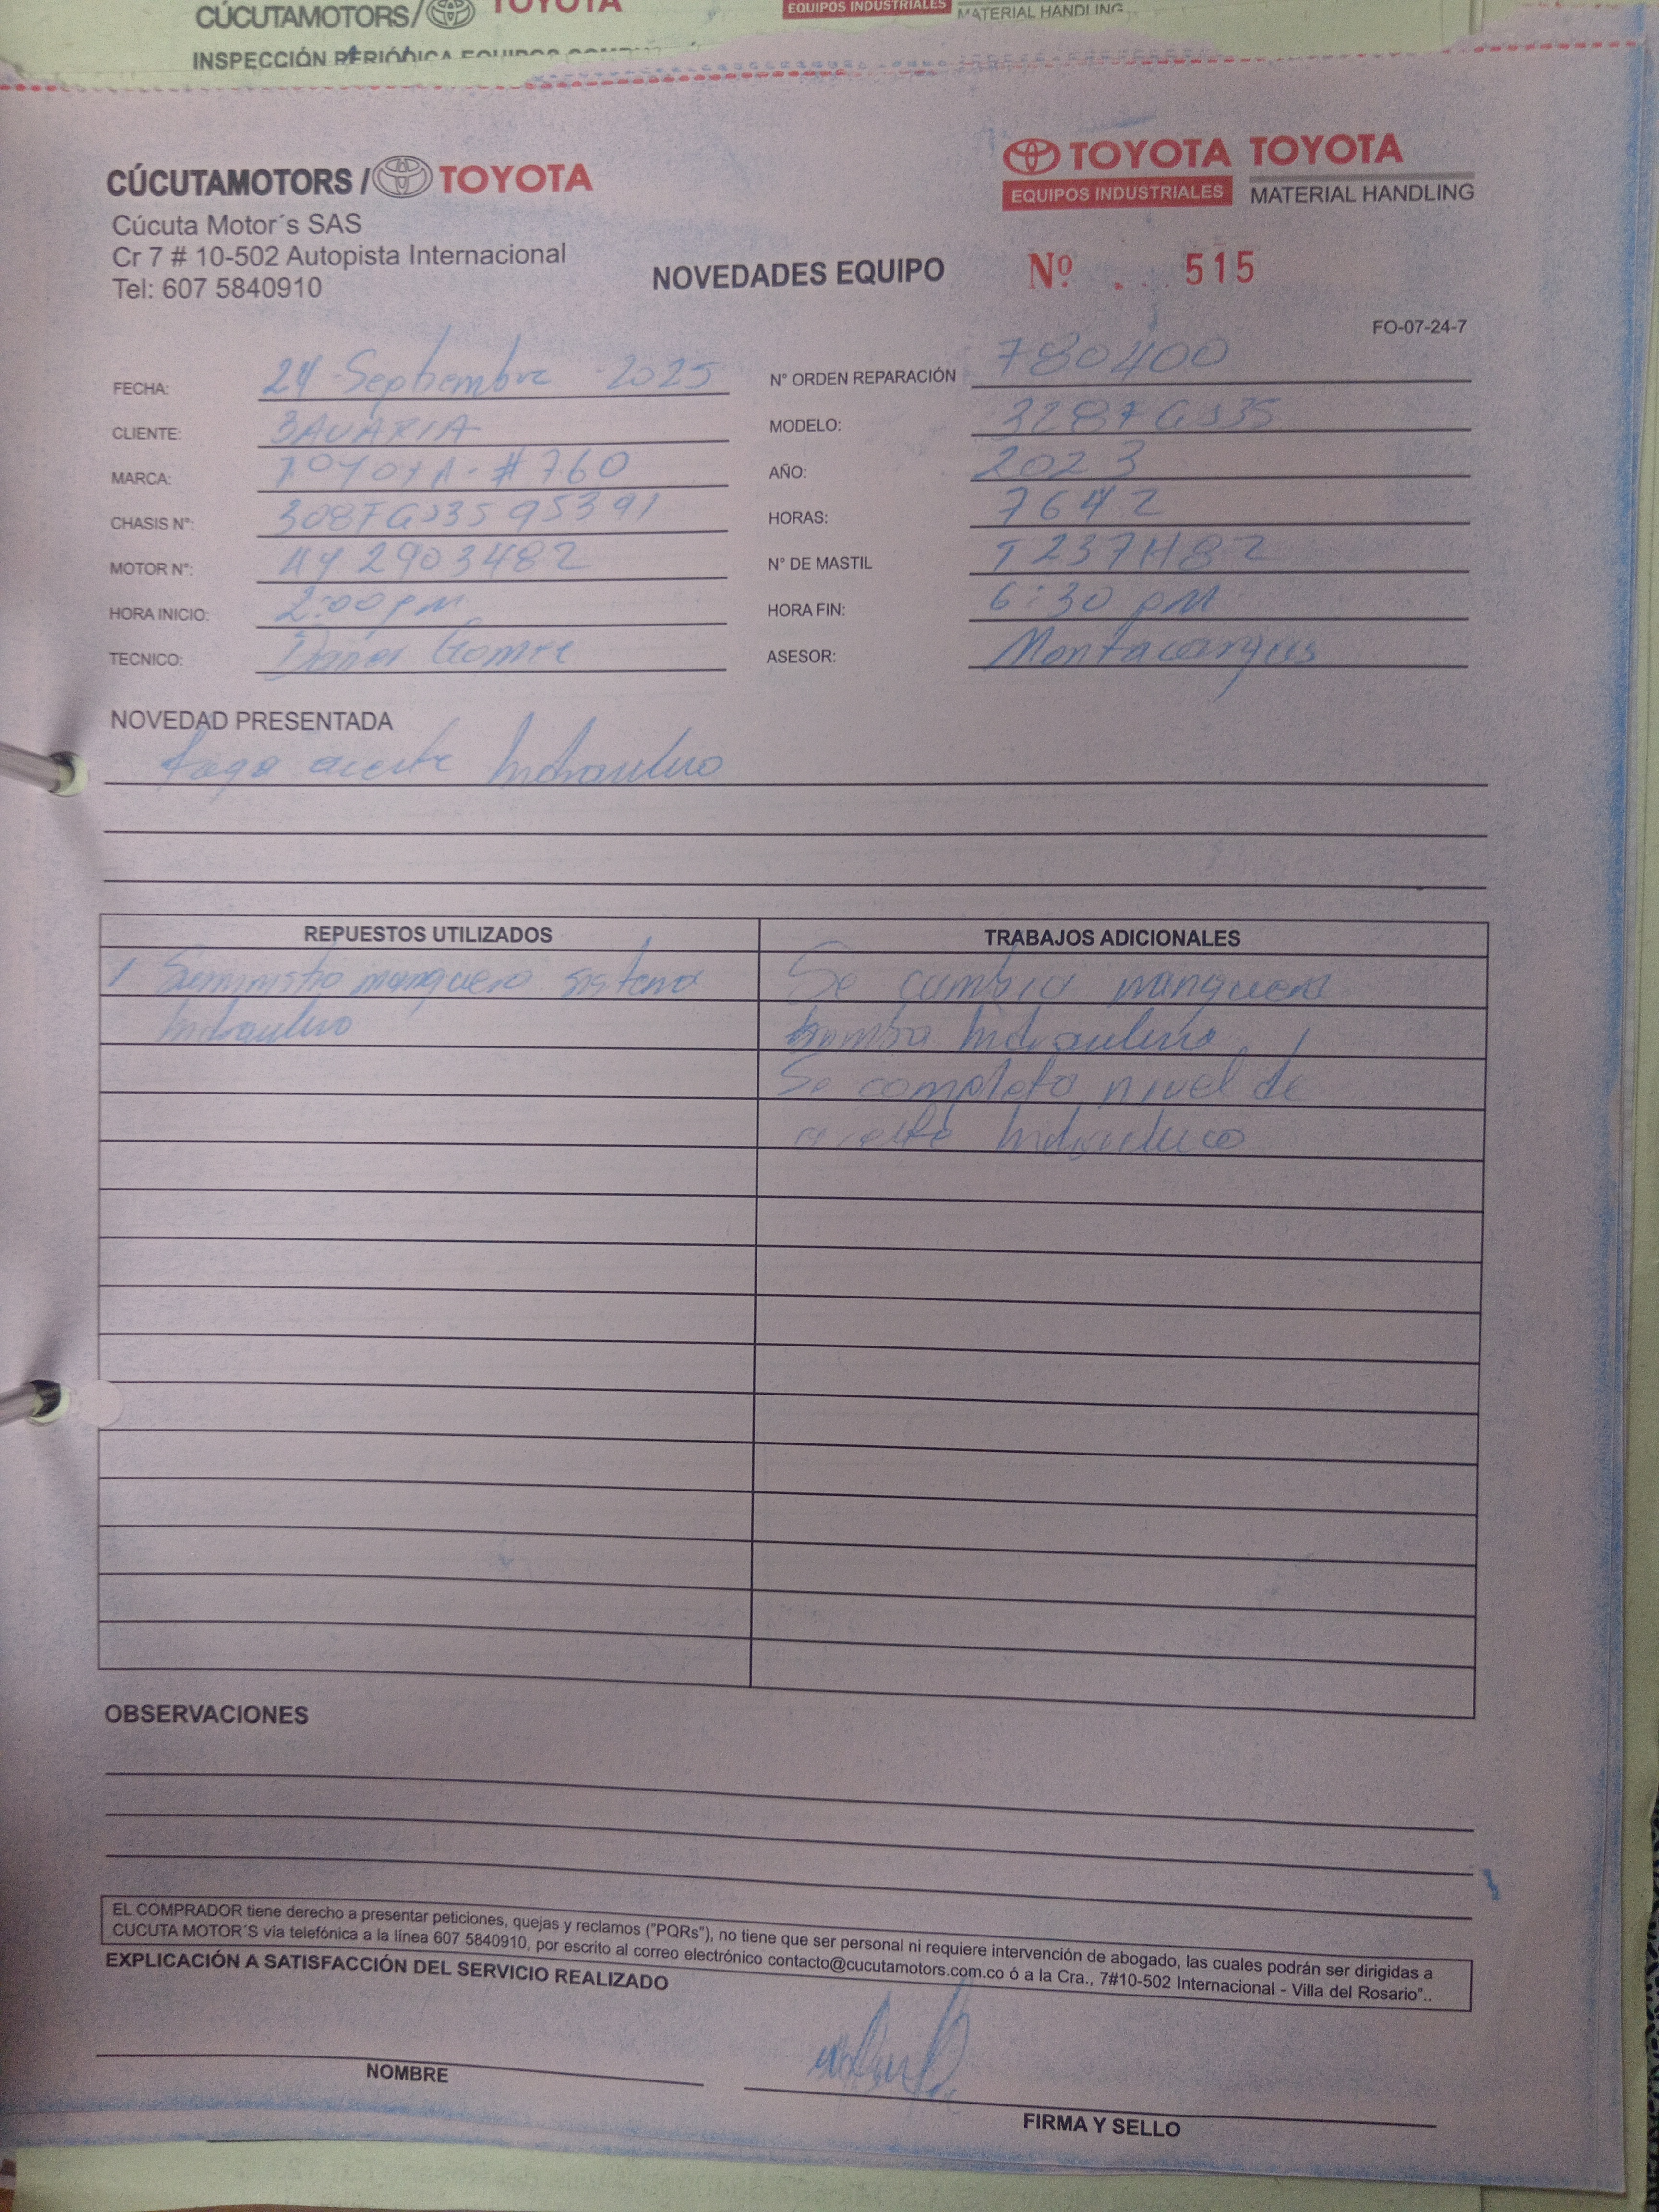 CÚCUTAMOTORS/ TOYOTA
EQUIPOS INDUSTRIALES MATERIAL HANDLING
INSPECCIÓN PERIÓDICA EQUIPOS
CÚCUTAMOTORS / TOYOTA
TOYOTA TOYOTA
EQUIPOS INDUSTRIALES MATERIAL HANDLING
Cúcuta Motor´s SAS
Cr 7 # 10-502 Autopista Internacional
Tel: 607 5840910
NOVEDADES EQUIPO
Nº 515
FO-07-24-7
FECHA: 24 Septiembre 2025
N° ORDEN REPARACIÓN 780400
CLIENTE: BAVARIA
MODELO: 328FGJ35
MARCA: TOYOTA - #760
AÑO: 2023
CHASIS N°: 308FGJ35 95391
HORAS: 7642
MOTOR N°: 4Y 2903482
N° DE MASTIL T237H82
HORA INICIO: 2:00 pm
HORA FIN: 6:30 pm
TECNICO: Gomez
ASESOR: Montacargas
NOVEDAD PRESENTADA
fuga aceite hidraulico
REPUESTOS UTILIZADOS
TRABAJOS ADICIONALES
1 Suministro manguera sistema
hidraulico
Se cambia manguera
bomba hidraulica
Se completo nivel de
aceite hidraulico
OBSERVACIONES
EL COMPRADOR tiene derecho a presentar peticiones, quejas y reclamos ("PQRs"), no tiene que ser personal ni requiere intervención de abogado, las cuales podrán ser dirigidas a
CUCUTA MOTOR´S vía telefónica a la línea 607 5840910, por escrito al correo electrónico contacto@cucutamotors.com.co ó a la Cra., 7#10-502 Internacional - Villa del Rosario"..
EXPLICACIÓN A SATISFACCIÓN DEL SERVICIO REALIZADO
NOMBRE
FIRMA Y SELLO